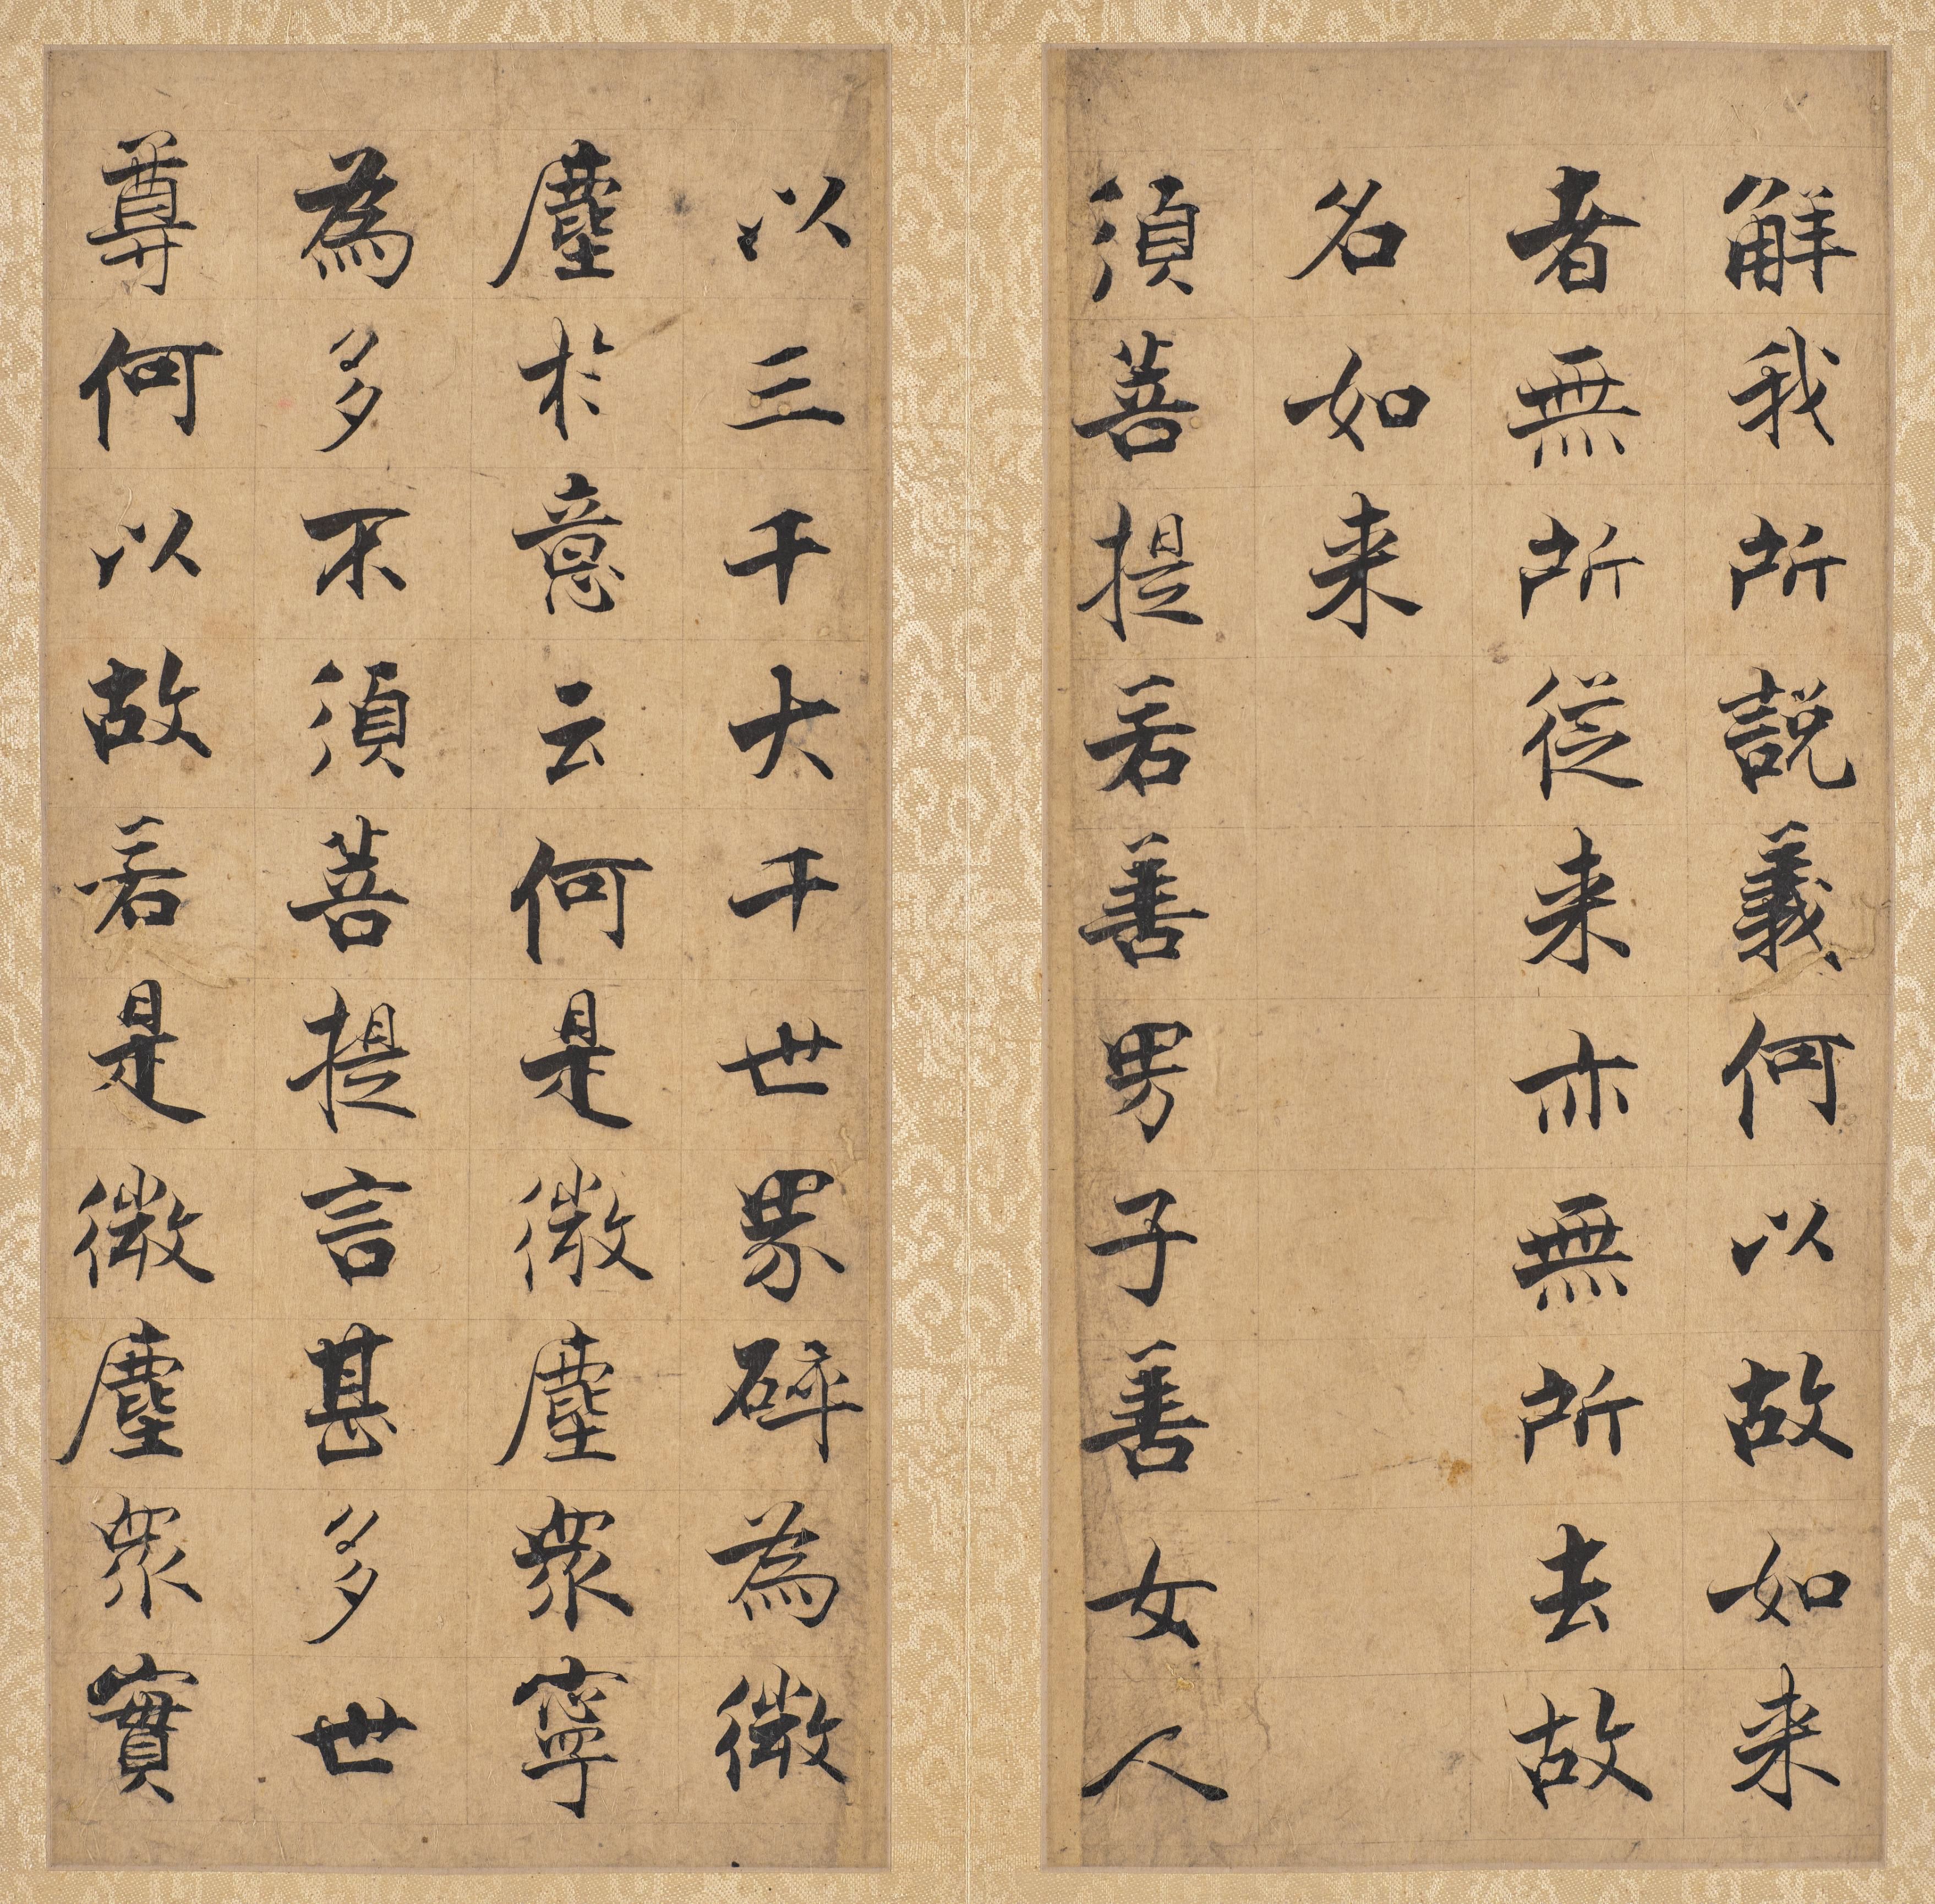 解我所説義何以故如来
者無所従来亦無所去故
名如来
須菩提若善男子善女人
以三千大千世界碎為微
塵於意云何是微塵衆寧
為多不須菩提言甚多世
尊何以故若是微塵衆實